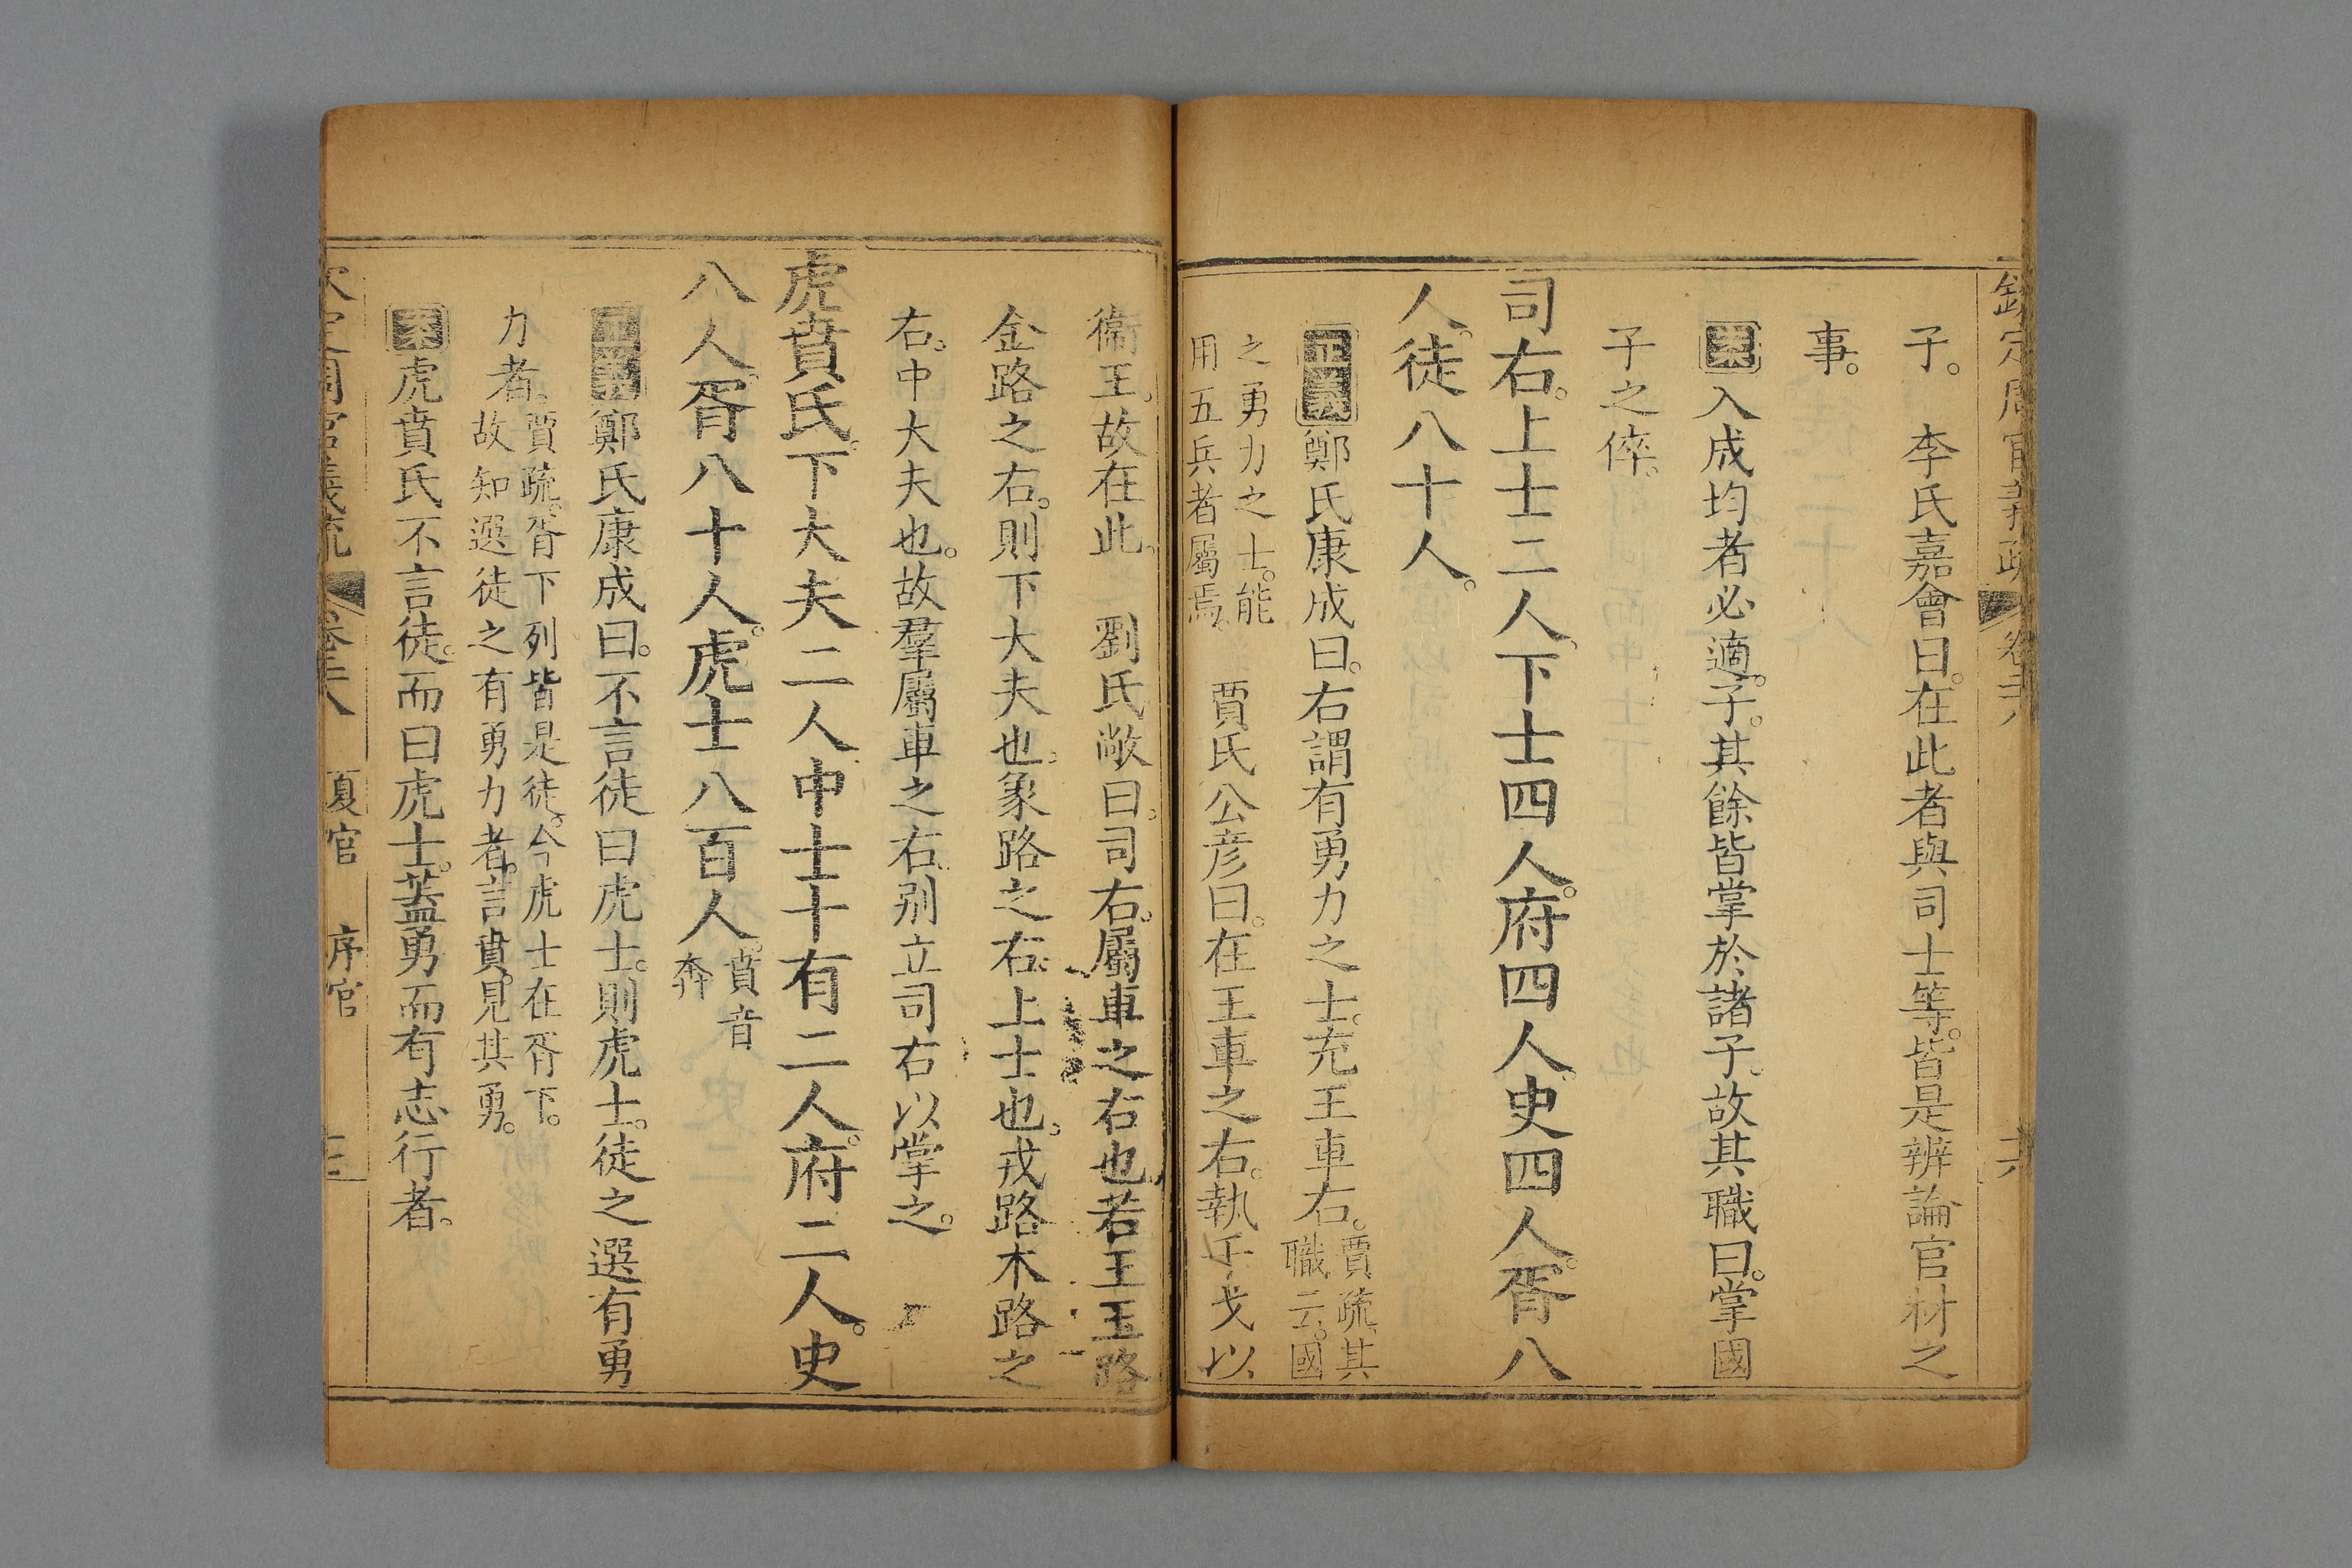 欽定周官義疏 卷二十八 六
子。李氏嘉會曰。在此者與司士等。皆是辨論官材之
事。
案入成均者必適子。其餘皆掌於諸子。故其職曰。掌國
子之倅。
司右。上士二人。下士四人。府四人。史四人。胥八
人。徒八十人。
正義鄭氏康成曰。右謂有勇力之士。充王車右。賈疏。其職云。國
之勇力之士。能用五兵者屬焉。賈氏公彦曰。在王車之右。執干戈以
衞王。故在此。劉氏敞曰。司右。屬車之右也。若王玉路
金路之右。則下大夫也。象路之右。上士也。戎路木路之
右。中大夫也。故羣屬車之右。别立司右以掌之。
虎賁氏。下大夫二人。中士十有二人。府二人。史
八人。胥八十人。虎士八百人。賁音奔
正義鄭氏康成曰。不言徒曰虎士。則虎士。徒之選有勇
力者。賈疏。胥下列皆是徒。今虎士在胥下。故知選徒之有勇力者。言賁。見其勇。
案虎賁氏不言徒。而曰虎士。葢勇而有志行者。
欽定周官義疏 卷二十八 夏官 序官